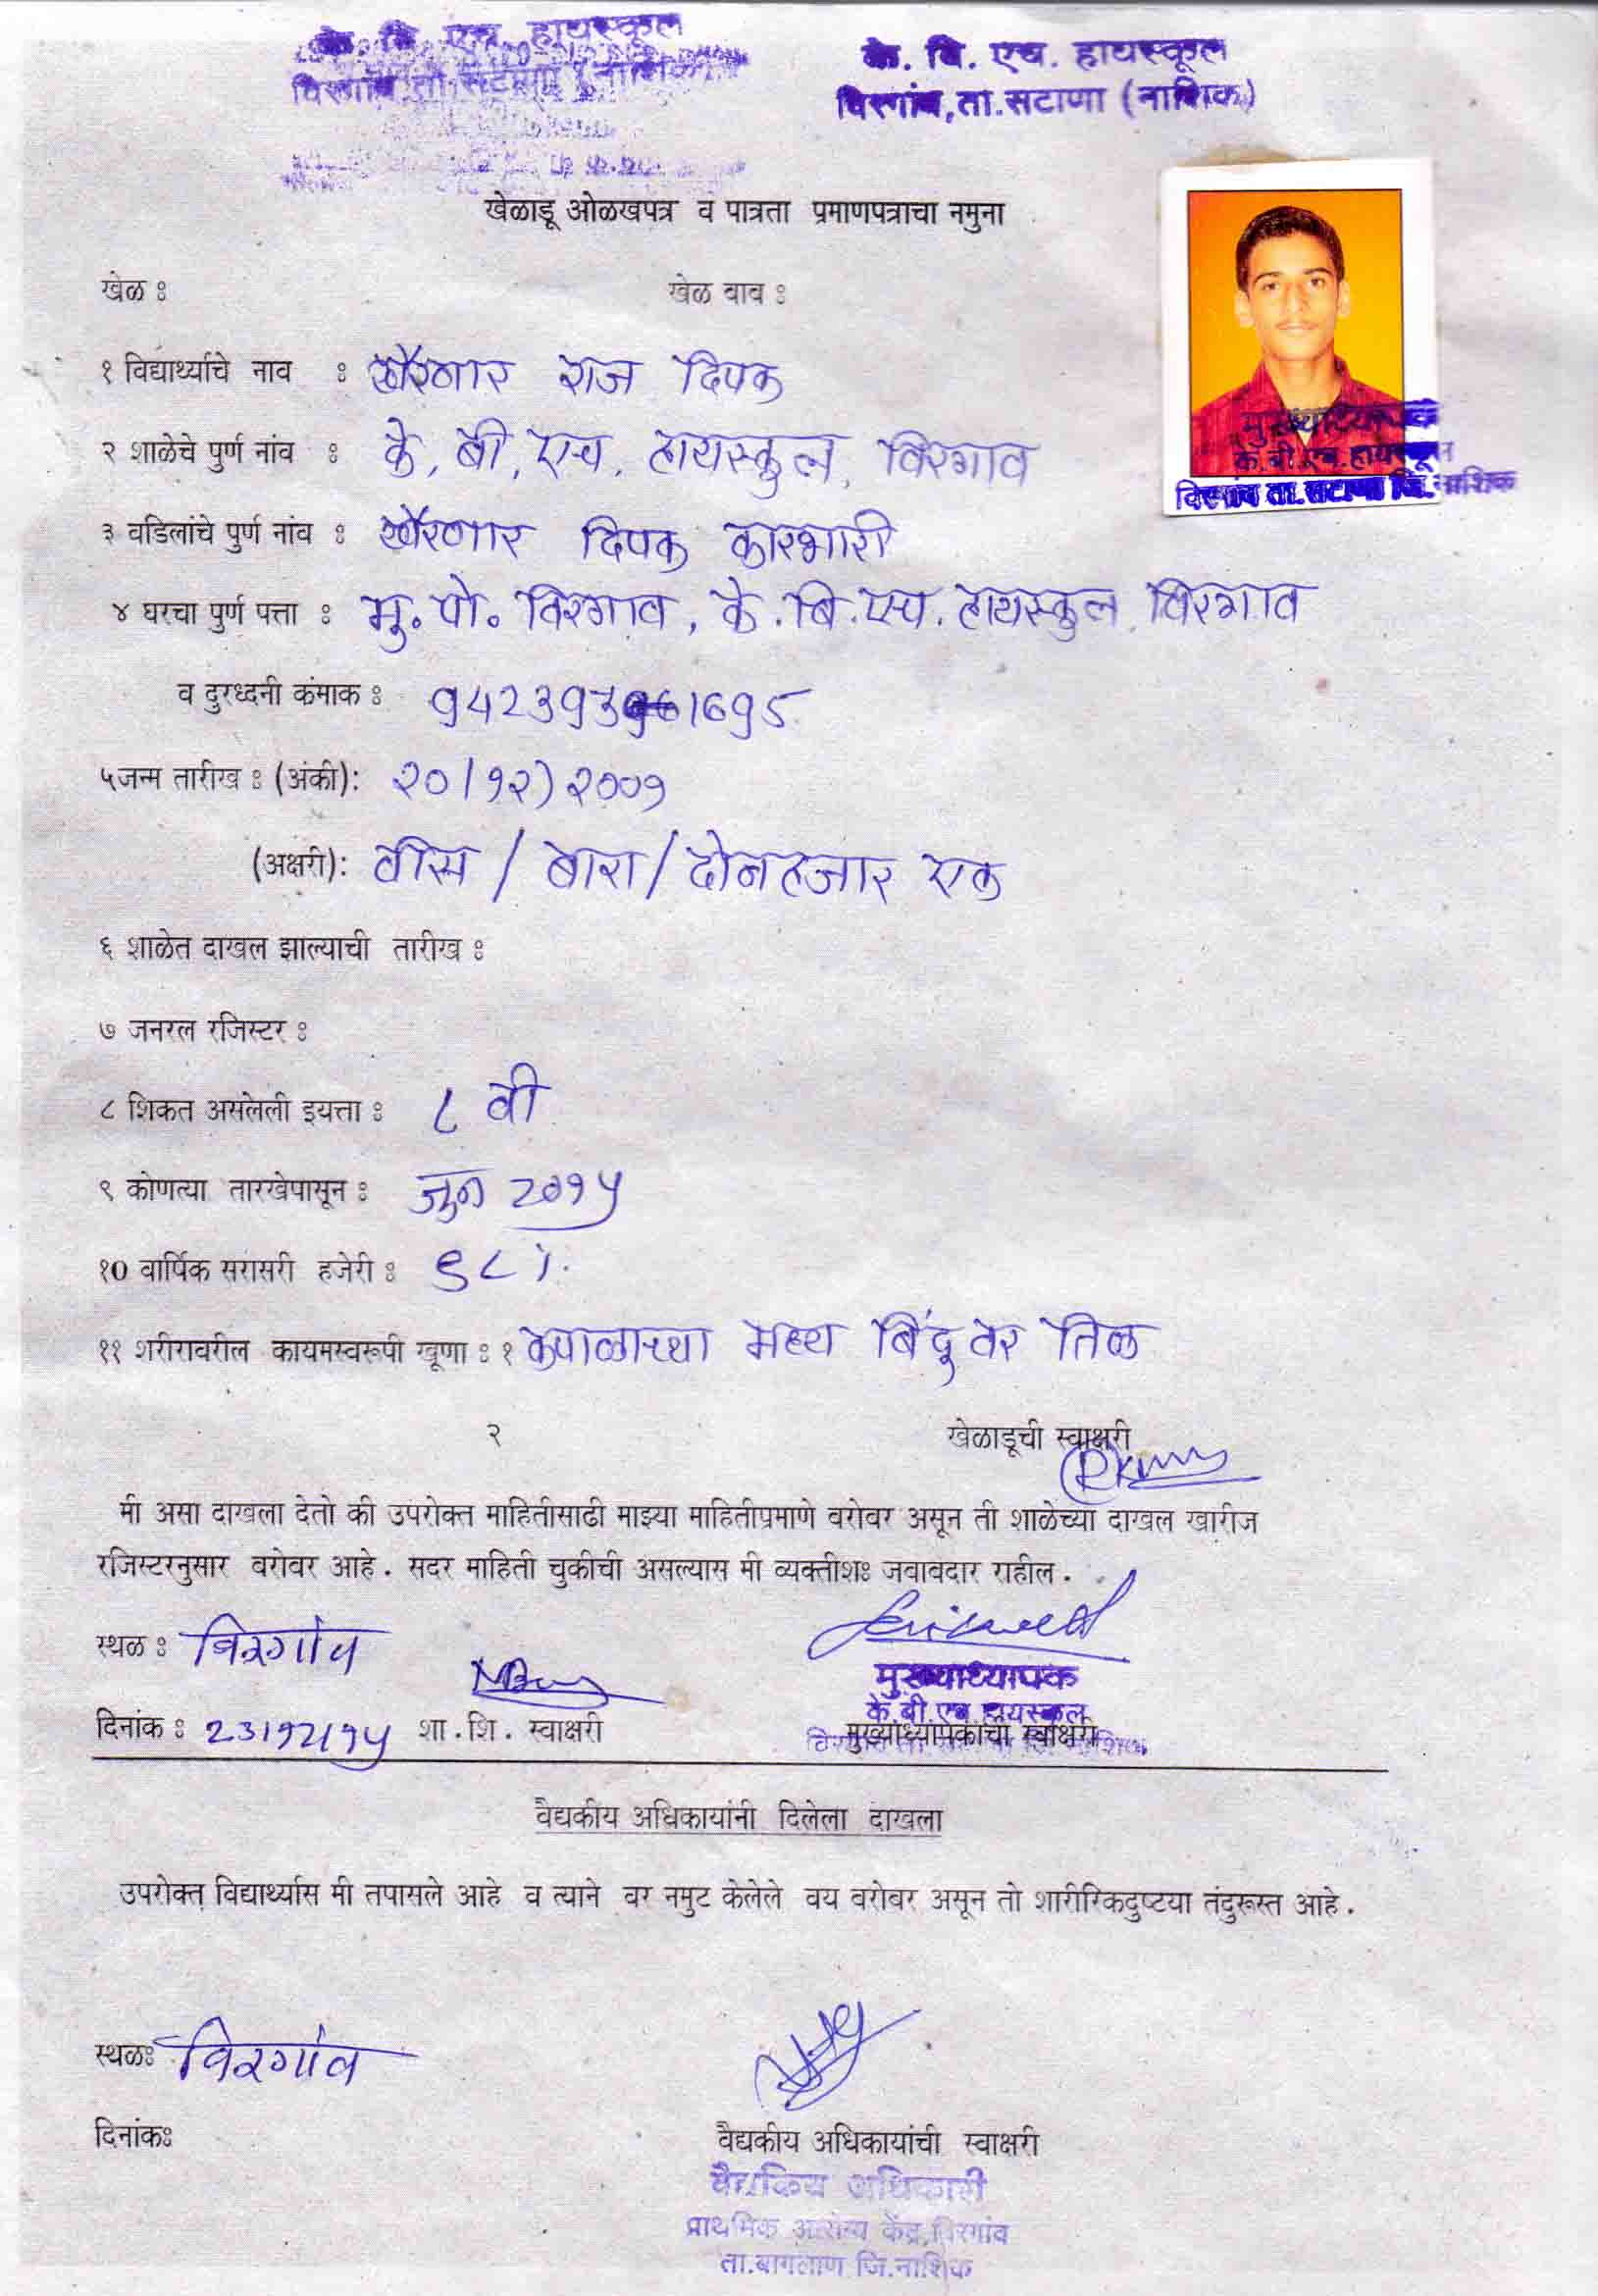 के. बि. एच. हायस्कूल
विरगांव ता. सटाणा (नाशिक)
के. बि. एच. हायस्कूल
विरगांव, ता. सटाणा (नाशिक)
खेळाडू ओळखपत्र व पात्रता प्रमाणपत्राचा नमुना
खेळ : खेळ बाब :
१ विद्यार्थ्याचे नाव : खैरनार राज दिपक
२ शाळेचे पुर्ण नांव : के. बी. एच. हायस्कुल, विरगाव
मुख्याध्यापक
के. बी. एच. हायस्कूल
विरगांव ता. सटाणा जि. नाशिक
३ वडिलांचे पुर्ण नांव : खैरणार दिपक कारभारी
४ घरचा पुर्ण पत्ता : मु. पो. विरगाव, के. बि. एच. हायस्कुल, विरगाव
व दुरध्दनी कंमाक :
५जन्म तारीख : (अंकी): २०/१२/२००१
(अक्षरी): वीस / बारा / दोनहजार एक
६ शाळेत दाखल झाल्याची तारीख :
७ जनरल रजिस्टर :
८ शिकत असलेली इयत्ता : ८ वी
९ कोणत्या तारखेपासून : जुन २०१५
१0 वार्षिक सरासरी हजेरी : ९८%
११ शरीरावरील कायमस्वरूपी खूणा : १ कपाळाच्या मध्य बिंदूवर तिळ
२ खेळाडूची स्वाक्षरी
मी असा दाखला देतो की उपरोक्त माहितीसाठी माझ्या माहितीप्रमाणे बरोबर असून ती शाळेच्या दाखल खारीज
रजिस्टरनुसार बरोबर आहे. सदर माहिती चुकीची असल्यास मी व्यक्तीशः जवाबदार राहील.
स्थळ : विरगांव
मुख्याध्यापक
के. बी. एच. हायस्कूल
दिनांक : 23/१२/१५ शा. शि. स्वाक्षरी मुख्याध्यापकाची स्वाक्षरी
वैद्यकीय अधिकायांनी दिलेला दाखला
उपरोक्त विद्यार्थ्यास मी तपासले आहे व त्याने वर नमुट केलेले वय बरोबर असून तो शारीरिकदुष्टया तंदुरूस्त आहे.
स्थळः विरगांव
दिनांकः वैद्यकीय अधिकायांची स्वाक्षरी
वैद्यकिय अधिकारी
प्राथमिक आरोग्य केंद्र, विरगांव
ता. बागलाण जि. नाशिक